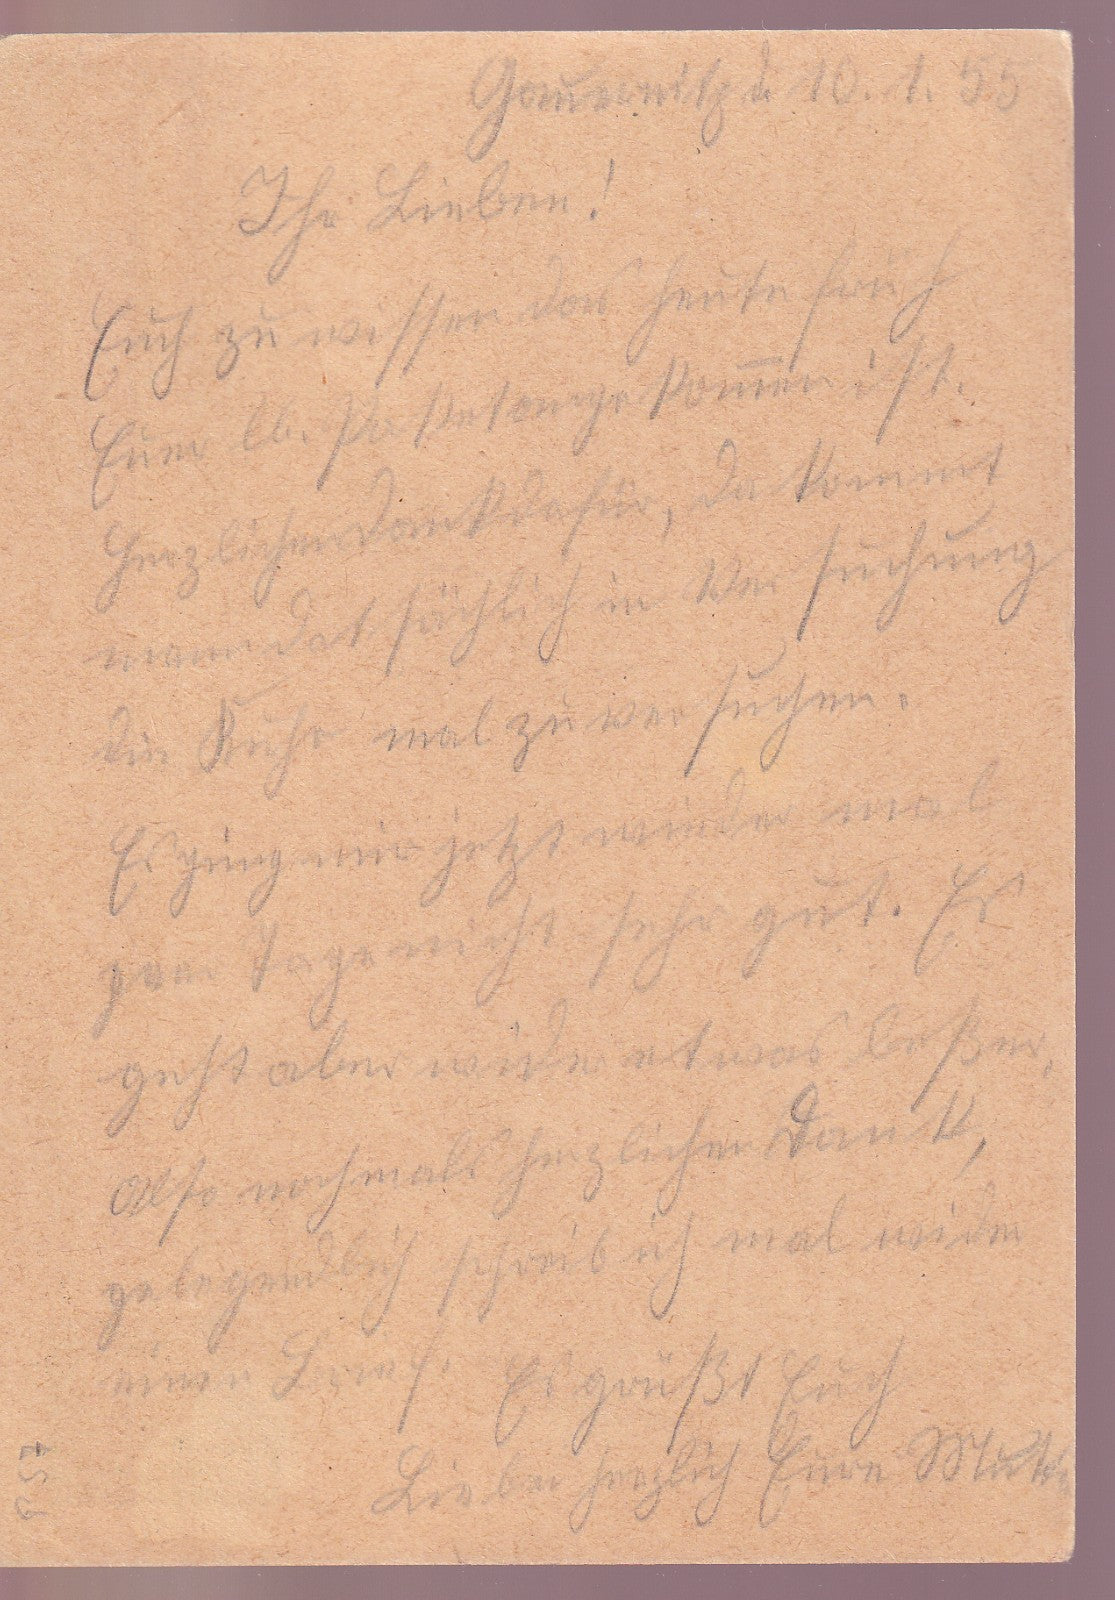 d. 10.1.55
Ihr Lieben!
Euch zu wissen das heute früh
Euer lb. Paket angekommen ist.
Herzlichen Dank dafür, da kommt
mann datsächlich in Versuchung
die Ruhe mal zu versuchen.
Es ging mir jetzt wieder mal
paar Tage nicht sehr gut. Es
geht aber wider etwas beßer,
also nochmals herzlichen Dank,
gelegendlich schreib ich mal wider
einen Brief. Es grüßt Euch
Lieben herzlich Eure Mutti